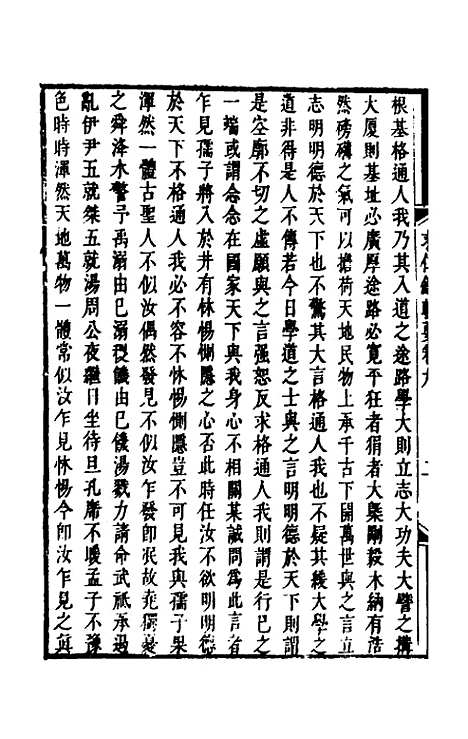 根基格通人我乃其入道之途路學大則立志大功夫大譬之搆
大厦則基址必廣厚途路必寬平狂者狷者大槩剛毅木納有浩
然磅礴之氣可以擔荷天地民物上承千古下開萬世與之言立
志明明德於天下也不驚其大言格通人我也不疑其緩大學之
道非得是人不傳若今日學道之士與之言明明德於天下則謂
是空廓不切之虛願與之言强恕反求格通人我則謂是行己之
一端或謂念念在國家天下與我身心不相關某誠問爲此言者
乍見孺子將入於井有怵惕惻隱之心否此時任汝不欲明明德
於天下不格通人我必不容不怵惕惻隱豈不可見我與孺子果
渾然一體古聖人不似汝偶然發見不似汝乍發即泯故堯獨憂
之舜洚水警予禹溺由己溺稷饑由己饑湯戮力請命武祗承遏
亂伊尹五就桀五就湯周公夜繼日坐待旦孔席不暖孟子不豫
色時時渾然天地萬物一體常似汝乍見怵惕今即汝乍見之眞
求仁錄輯要卷九
二